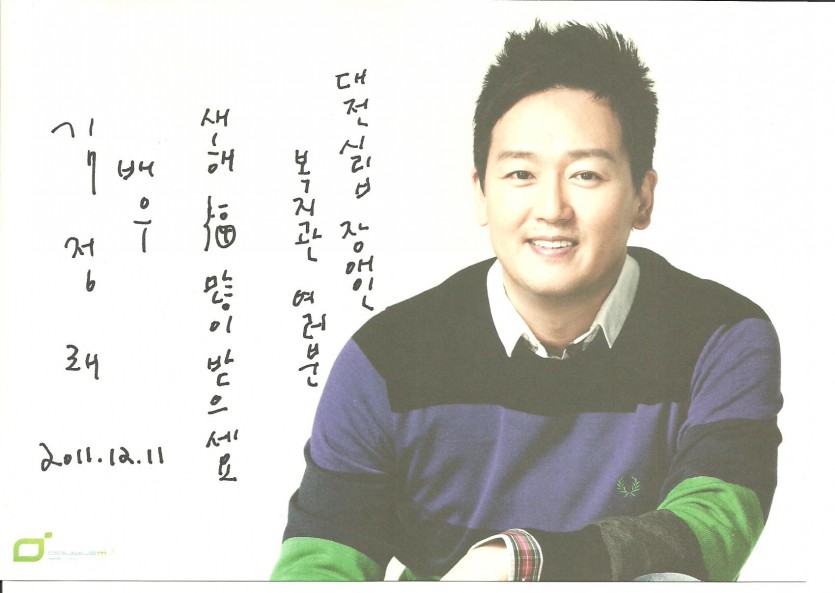 대전시립 장애인
복지관 여러분
새해 福 많이 받으세요
배우
김정래
2011.12.11